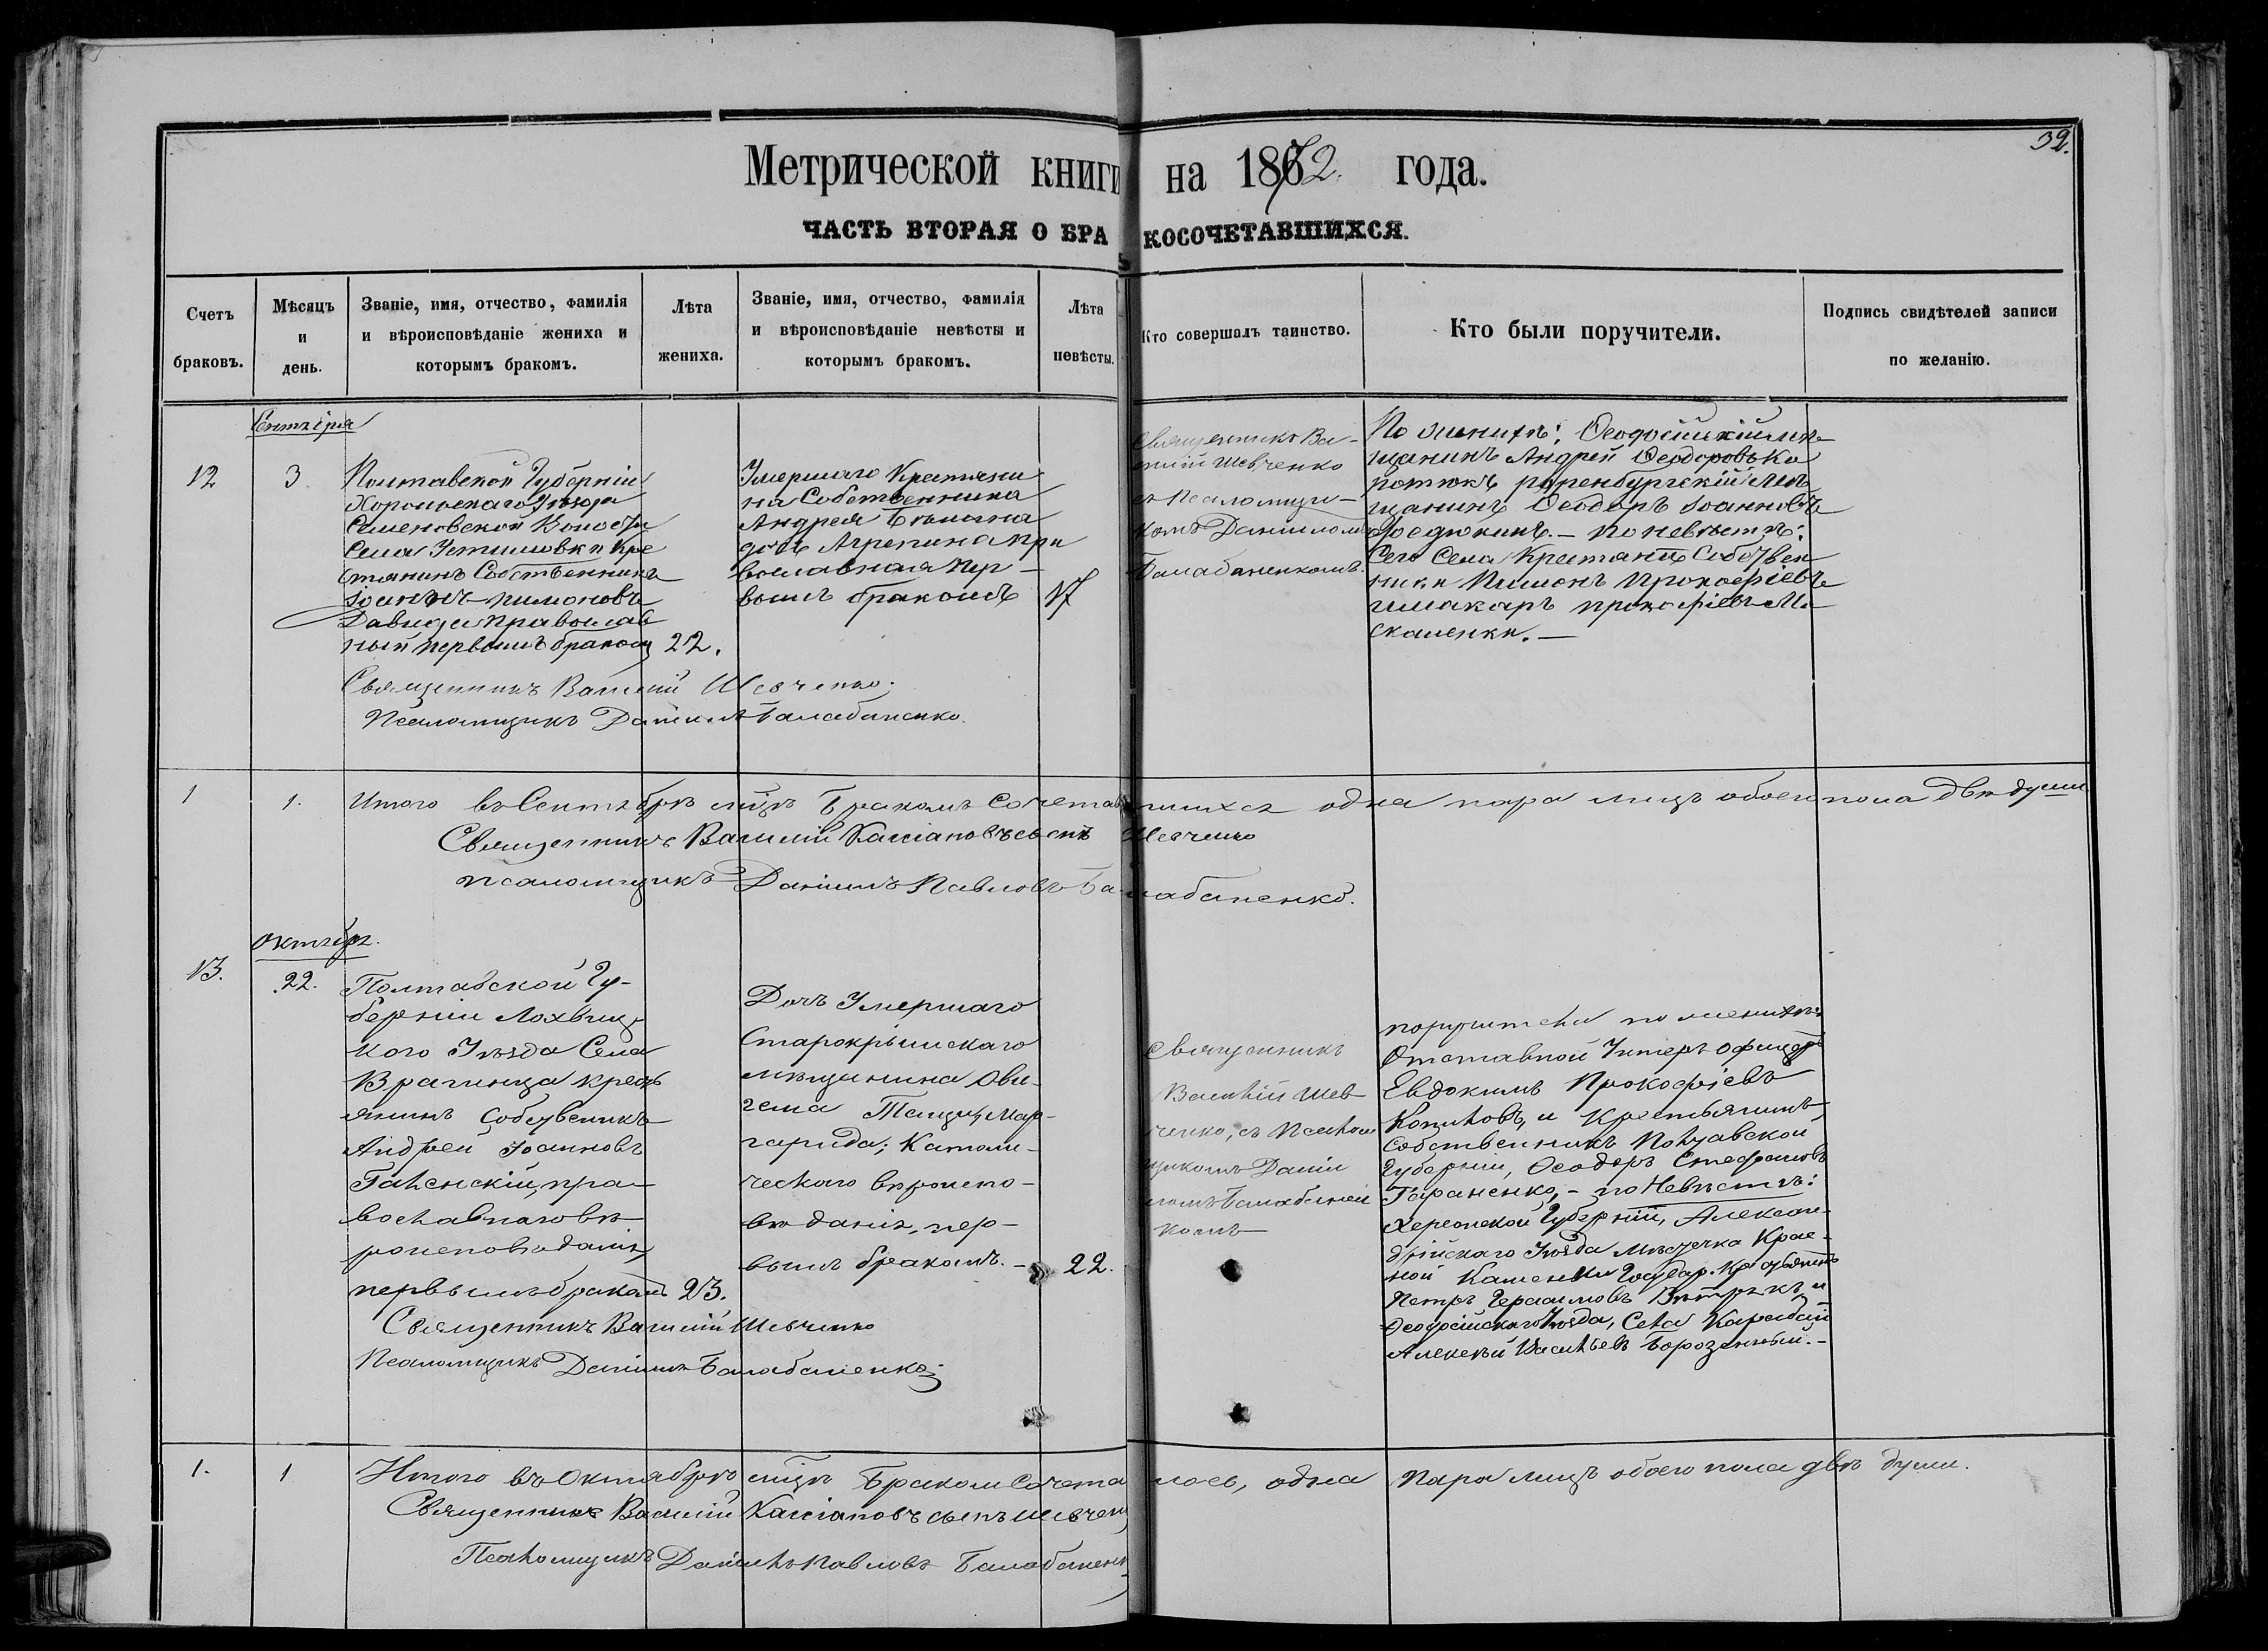 32.
Метрической книги на 1872. года.
ЧАСТЬ ВТОРАЯ О БРАКОСОЧЕТАВШИХСЯ.
Счетъ браковъ.
Мѣсяцъ и день.
Званіе, имя, отчество, фамилія
и вѣроисповѣданіе жениха и
которымъ бракомъ.
Лѣта жениха.
Званіе, имя, отчество, фамилія
и вѣроисповѣданіе невѣсты и
которымъ бракомъ.
Лѣта невѣсты.
Кто совершалъ таинство.
Кто были поручители.
Подпись свидѣтелей записи
по желанію.
Сентября
12
3
Полтавской Губерніи
Хорольскаго Уѣзда
Семеновской Волости
Села Устимовки Кре
стянинъ Собственникъ
Іоаннъ Пимоновъ
Давида Православ
ный первымъ бракомъ
22.
Умершаго Крестяни
на Собственника
Андрея
дочь Агрепина пра
вославная пер-
вымъ бракомъ
17
Священникъ Ва-
силій Шевченко
съ Псаломщи-
комъ Даніиломъ
Балабаненкомъ
По жениху: Ѳеодосійскій мѣ
щанинъ Андрей Ѳеодоровъ Ко
ротокъ Оренбургскій мѣ
щанинъ Ѳеодоръ Іоанновъ
По невѣстѣ:
Сего Села Крестяне Собствен
ники Пимонъ Прокофіевъ
и Макаръ Прокофіевъ Мо
скаленки.
Священникъ Василій Шевченко.
Псаломщикъ Даніилъ Балабаненко.
1
1.
Итого въ Сентябрѣ мцѣ Бракомъ Сочетавшихся одна пара лицъ обоего пола двѣ души
Священникъ Василій Кассіановъ сынъ Шевченко
Псаломщикъ Даніилъ Павловъ Балабаненко.
Октября.
13.
22.
Полтавской Гу-
берніи Лохвиц
кого Уѣзда Села
крест
янинъ Собственикъ
Андрей Іоанновъ
пра-
вославнаго вѣ
роисповѣданія
первымъ бракомъ
23.
Дочь Умершаго
Старокрымскаго
мѣщанина Ови-
Мар-
гарида; Католи-
ческого вѣроиспо-
вѣданія, пер-
вымъ бракомъ.
22.
Священникъ
Василій Шев
ченко, съ Псалом
щикомъ Даніи
ломъ Балабанен
комъ
поручители по женихѣ:
Отставной Унтеръ Офицеръ
Евдокимъ Прокофіевъ
и Крестьянинъ
Собственникъ Полтавской
Губерніи, Ѳеодоръ Стефановъ
Тараненко, - по Невѣстѣ:
Херсонской Губерніи, Алексан-
дрійскаго Уѣзда Мѣстечка Крас-
ной Каменки Государ. Крестьянинъ
Петръ Герасимовъ и
Ѳеодосійскаго Уѣзда, Села
Алексѣй Васильевъ Борозенный.
Священникъ Василій Шевченко
Псаломщикъ Даніилъ Балабаненко
1.
1
Итого въ Октябрѣ мцѣ Бракомъ Сочеталось, одна Пара лицъ обоего пола двѣ души.
Священникъ Василій Кассіановъ сынъ Шевченко
Псаломщикъ Даніилъ Павловъ Балабаненко